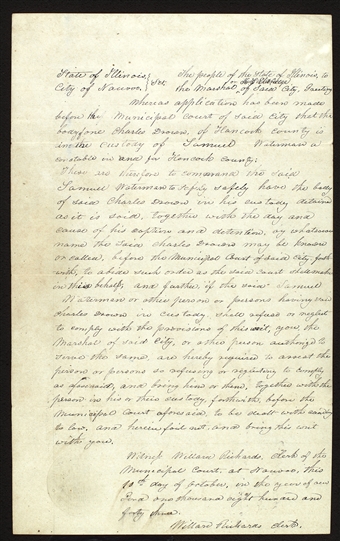 State of Illinois, } The people of the State of Illinois, to
City of Nauvoo, } Sct. the Marshal of said City, Greeting
Whereas application has been made
before the Municipal Court of said City that the
body of one Charles Drown, of Hancock county is
in the custody of Samuel Waterman a
constable in and for Hancock County:
These are therefore to command the said
Samuel Waterman to safely have the body
of said Charles Drown in his custody detained
as it is said, together with the day and
cause of his caption and detention, by whatsoever
name the said Charles Drown may be known
or called, before the Municipal Court of said City, forth
with, to abide such order as the said court shall make
in this behalf; and further if the said Samuel
Waterman or other person or persons having said
Charles Drown in custody, shall refuse or neglect
to comply with the provisions of this writ, you, the
Marshal of said City, or other person authorized to
serve the same, are hereby required to arrest the
person or persons so refusing or neglecting to comply
as aforesaid, and bring him or them, together with the
person in his or their custody, forthwith, before the
Municipal Court aforesaid, to be dealt with according
to law, and herein fail not, and bring this writ
with you.
Witness Willard Richards, clerk of the
Municipal Court, at Nauvoo, this
10th day of October, in the year of our
Lord one thousand eight hundred and
forty
Willard Richards clerk.